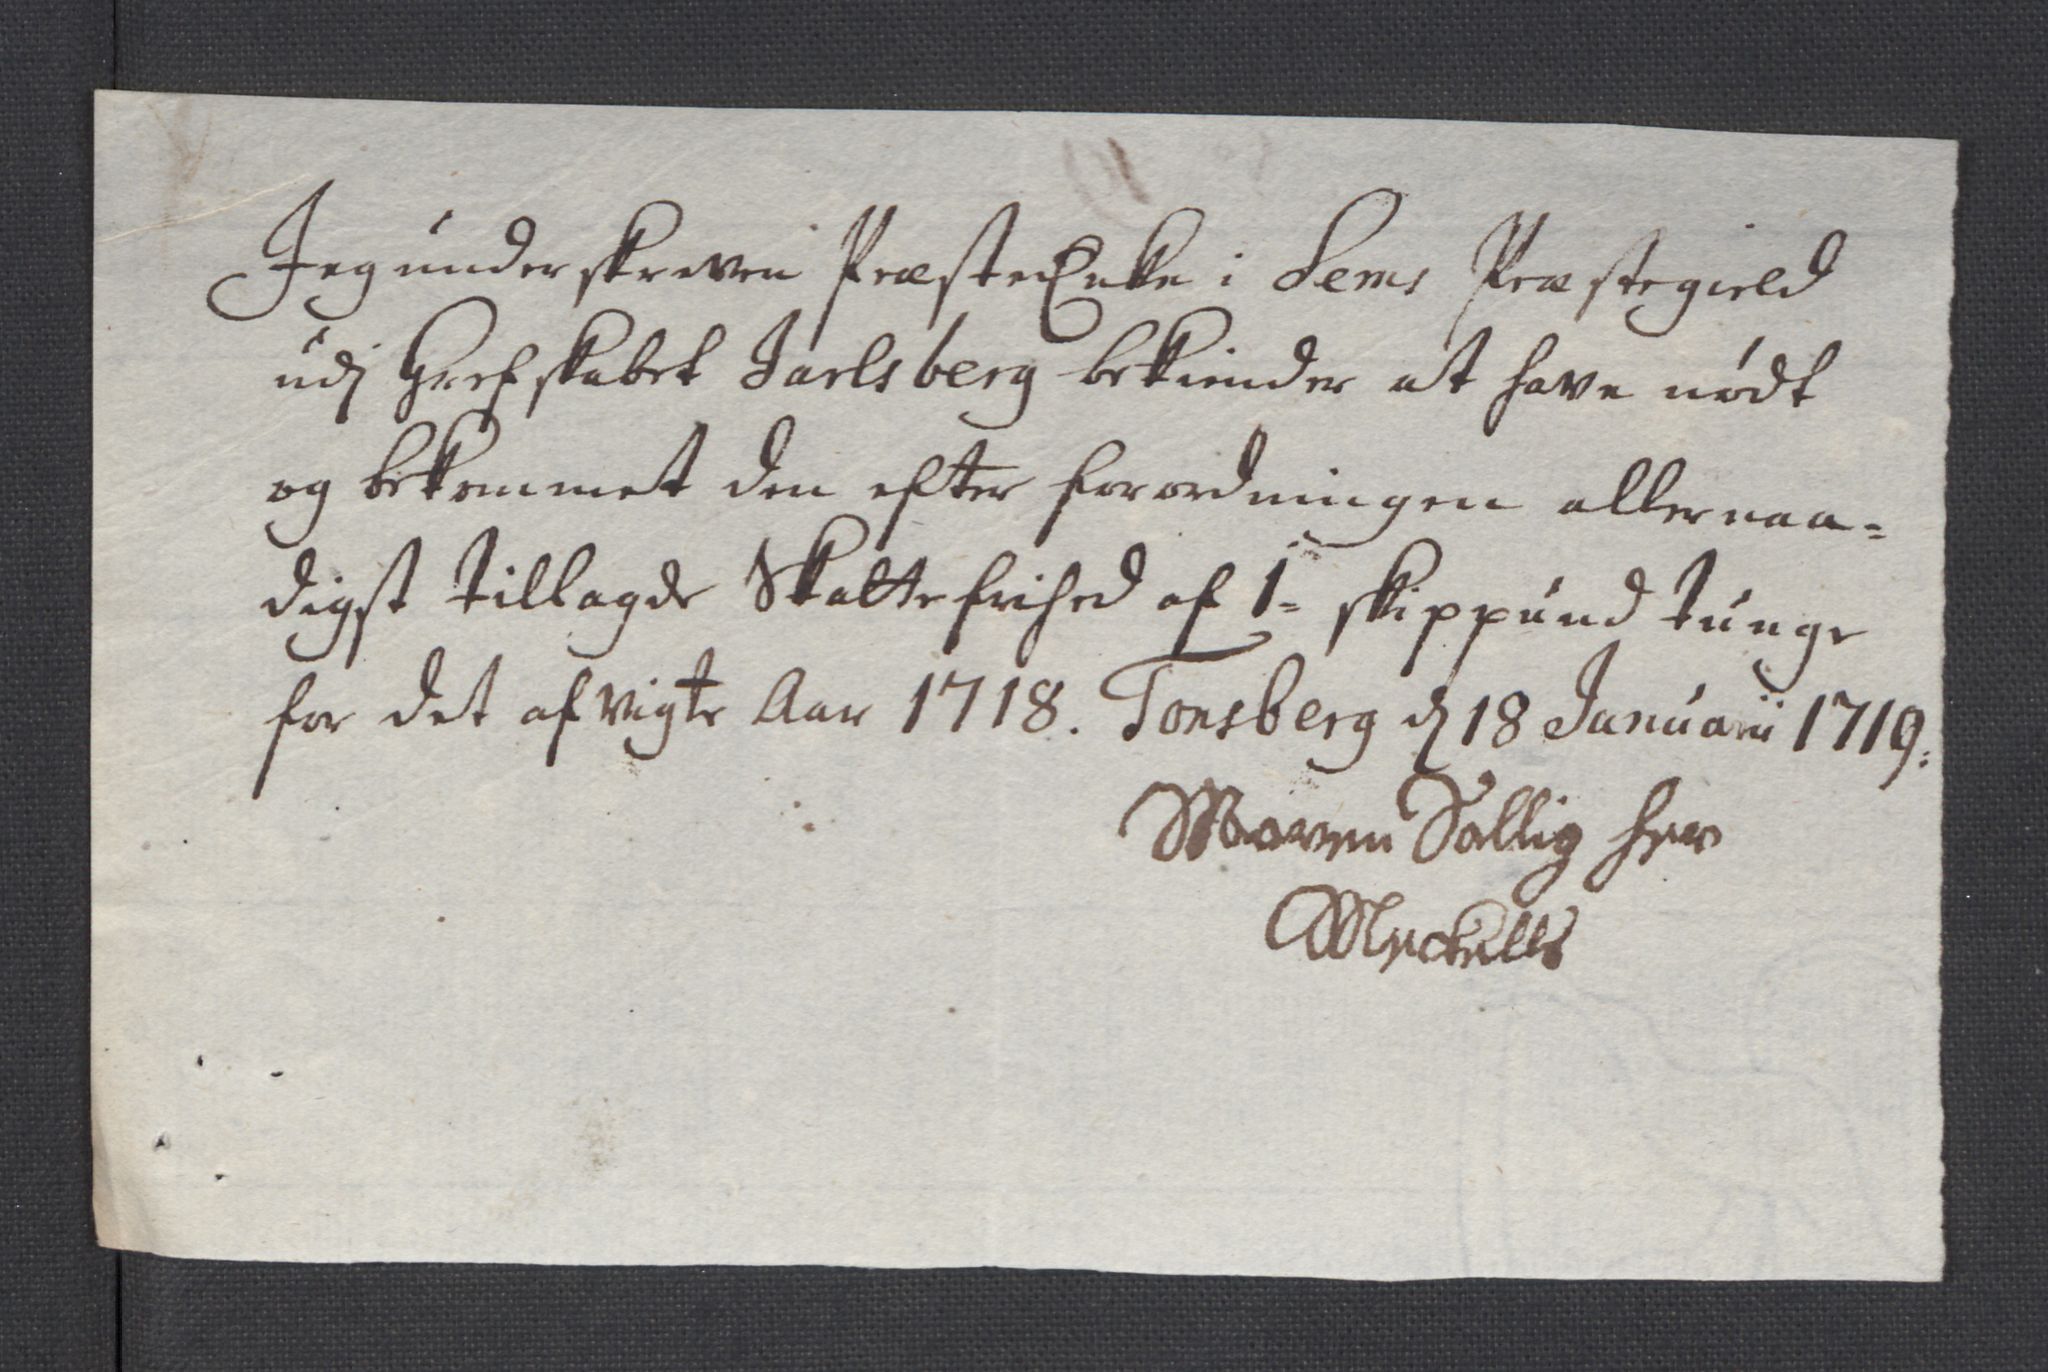 Jeg underskreven PræsteEnke i Sems Præstegield
udj Grefskabet Jarlsberg bekiender at have nødt
og bekommet den efter forordningen allernaa=
digst tillagde Skattefrihed af 1= skippund tunge
for det afvigte Aar 1718. Tonsberg d 18 Januarii 1719.
Maren Sallig her
Myckells